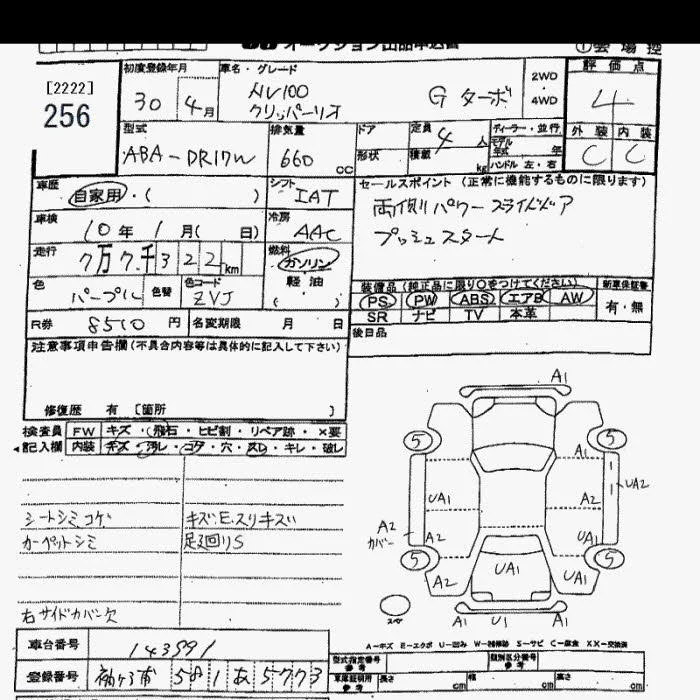 オークション出品申込書
①会場控
[2222]
256
初度登録年月 30 4月
車名・グレード NV100 クリッパーリオ Gターボ
2WD
4WD
評価点
4
外装 内装
C C
型式 ABA-DR17W
排気量 660 CC
ドア
形状
定員 4 人
積載 kg
ディーラー・並行
モデル年式 年
ハンドル 左・右
車歴 自家用・( )
シフト IAT
セールスポイント (正常に機能するものに限ります)
両側パワースライドドア
プッシュスタート
車検 10年 1月( 日)
冷房 AAC
走行 7万7千322km
燃料 ガソリン
軽油
( )
色 パープル 色替 色コード ZVJ
装備品 (純正品に限り○をつけてください) 新車保証書
PS PW ABS エアB AW 有・無
SR ナビ TV 本革
R券 8510 円 名変期限 月 日
後日品
注意事項申告欄 (不具合内容等は具体的に記入して下さい)
修復歴 有 [箇所 ]
検査員 FW キズ・飛石・ヒビ割・リペア跡・×要
記入欄 内装 キズ・汚レ・コゲ・穴・スレ・キレ・破レ
シートシミコゲ キズE・スリキズ
カーペットシミ 足廻りS
右サイドカバー欠
A1
5 5
A1
UA2
UA1 A1
A2 カバー
A2 UA1
5 5
A2 UA1 UA1
スペア
A1 U1 A1
A-キズ E-エクボ U-凹み W-補修跡 S-サビ C-腐食 XX-交換済
車台番号 143991
登録番号 袖ヶ浦 581 あ 5773
型式指定番号 参考 類別区分番号 参考
車庫証明用 参考 長さ cm 幅 cm 高さ cm